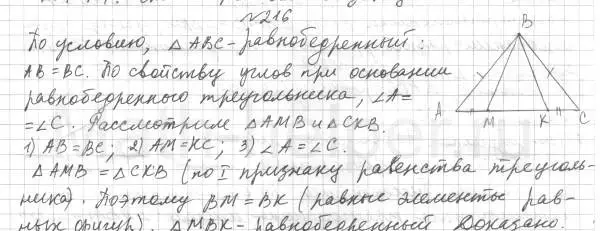 №216
По условию, △ABC - равнобедренный:
AB = BC. По свойству углов при основании
равнобедренного треугольника, ∠A=
=∠C. Рассмотрим △AMB и △CKB.
1) AB = BC; 2) AM = KC; 3) ∠A = ∠C.
△AMB = △CKB (по I признаку равенства треуголь-
ника). Поэтому BM = BK (равные элементы рав-
ных фигур). △MBK - равнобедренный Доказано.
B
A
M
K
C